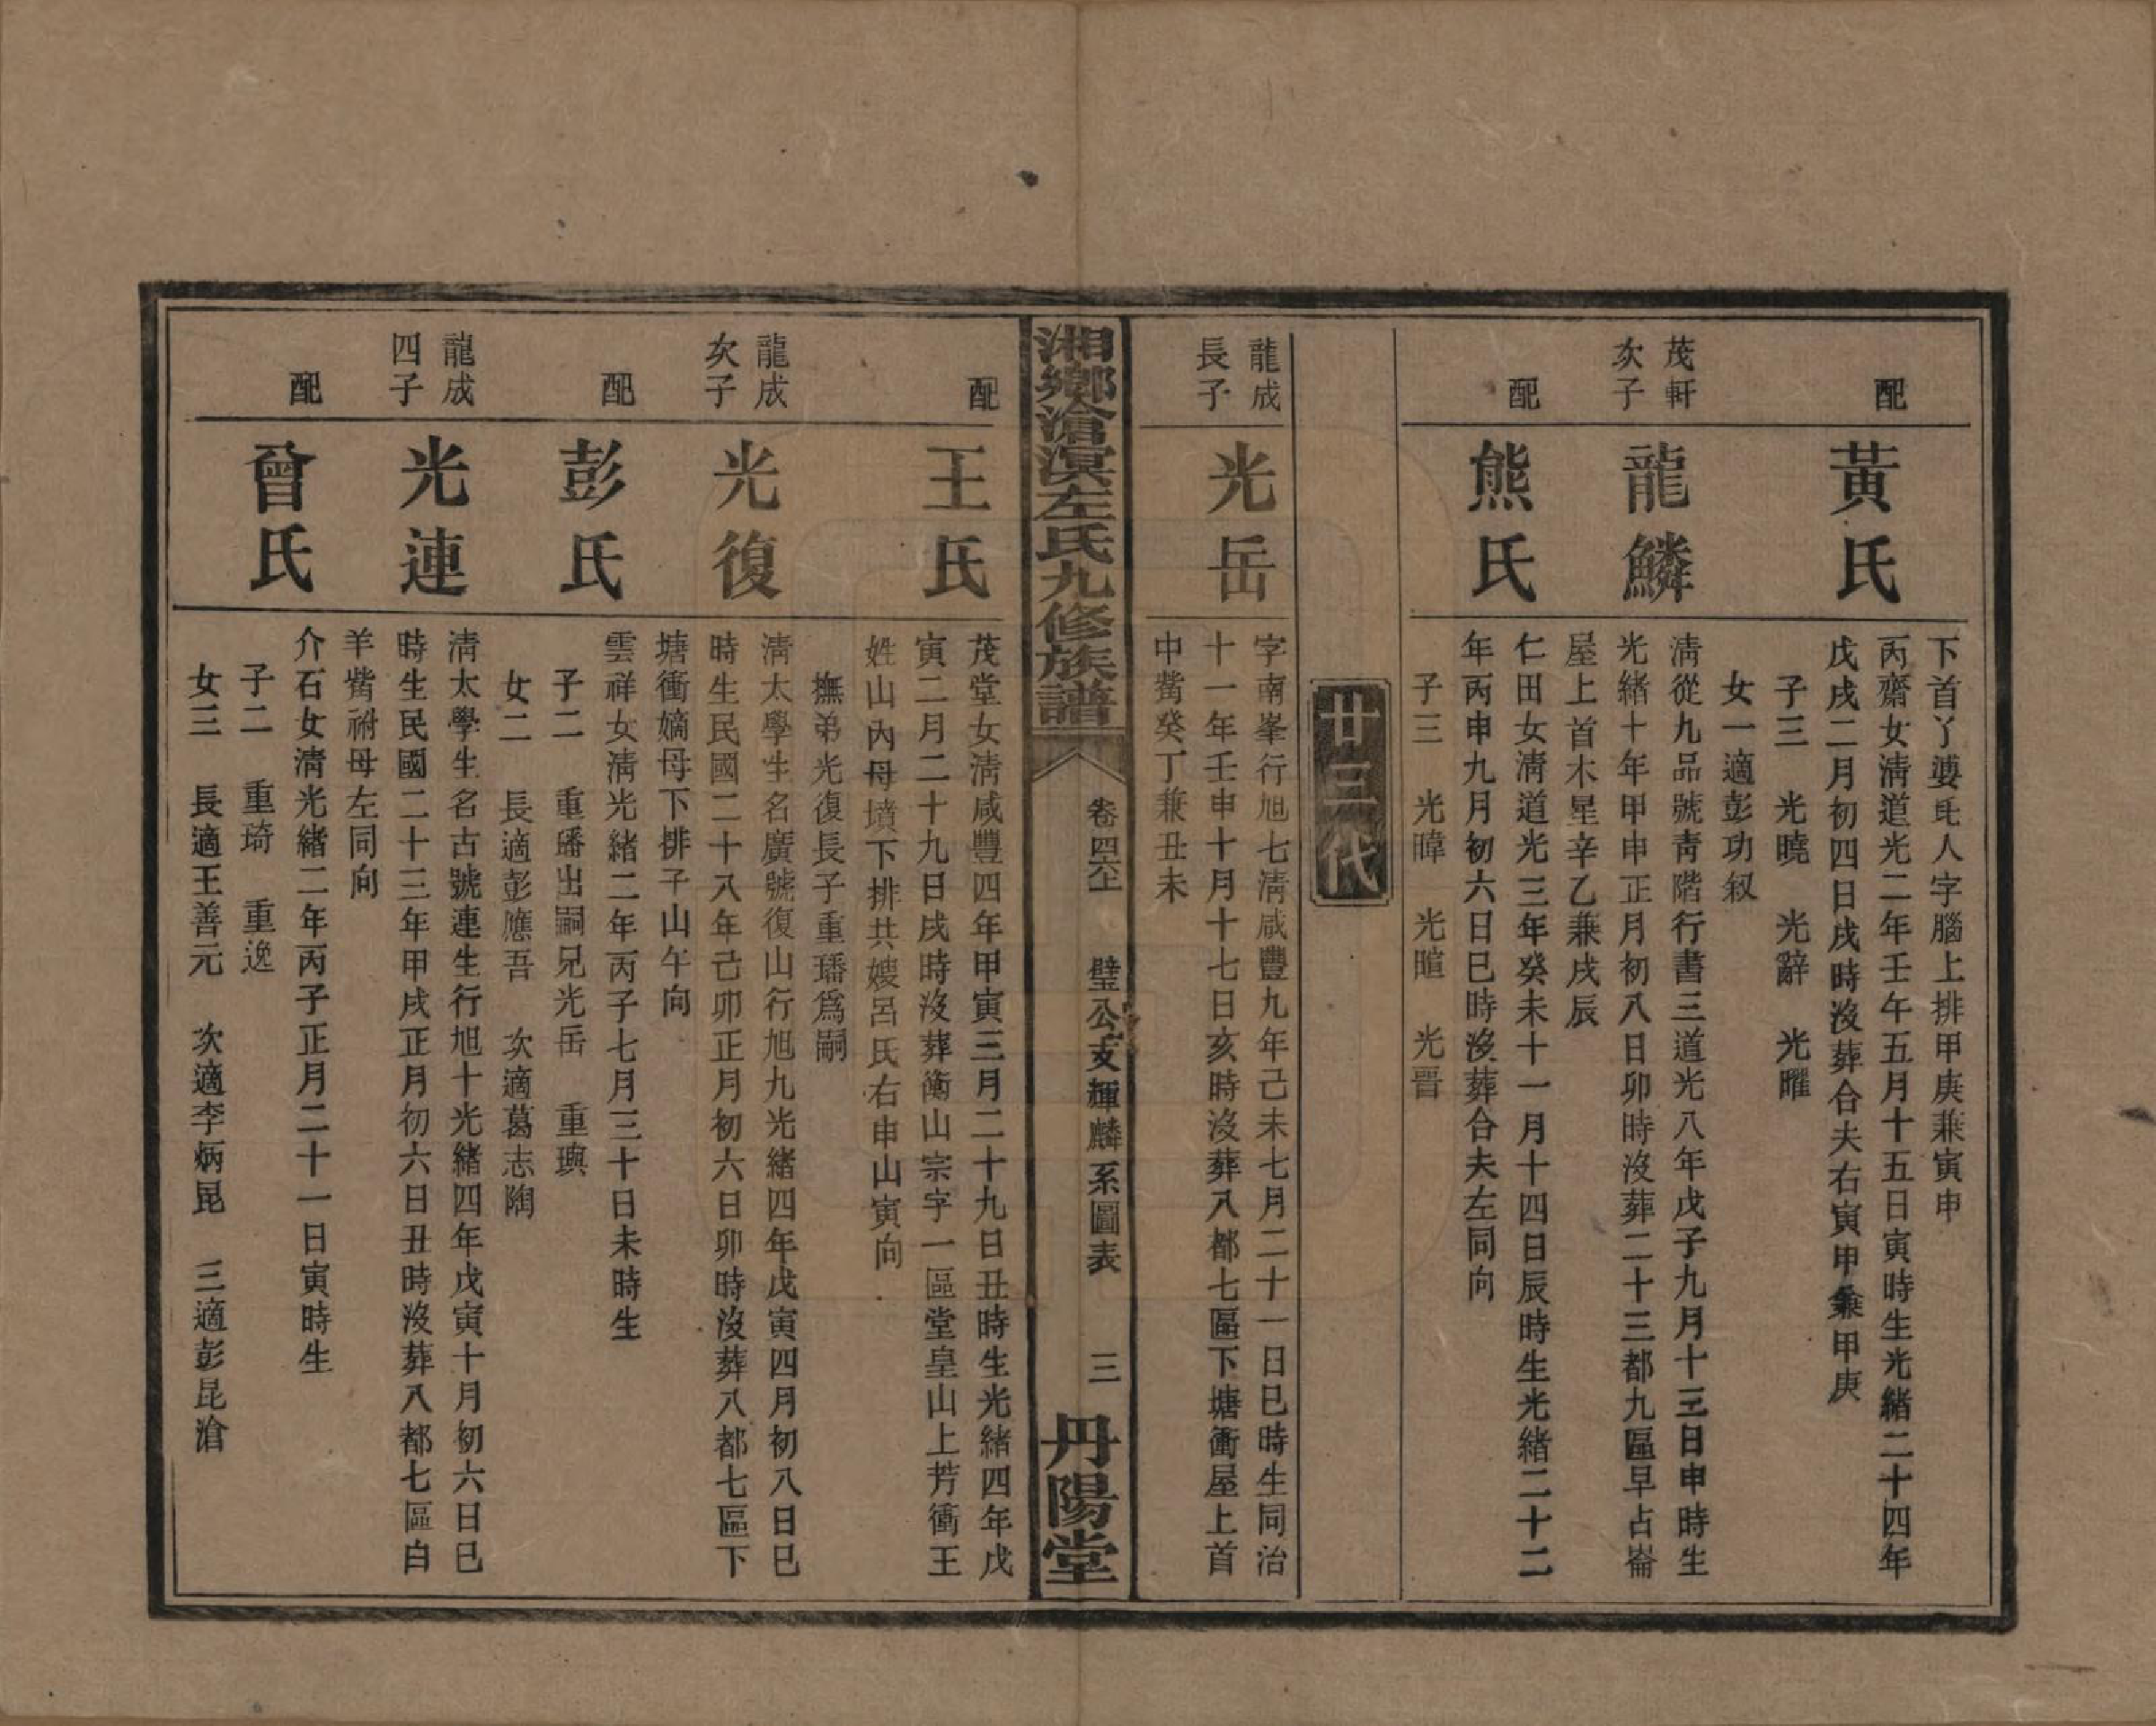 下首丫婆毛人字腦上排甲庚兼寅申
配
黃氏
丙齋女清道光二年壬午五月十五日寅時生光緒二十四年
戊戌二月初四日戌時沒葬合夫右寅申兼甲庚
子三 光曉 光辭 光曜
女一適彭功叙
茂軒
次子
龍鱗
清從九品號青階行書三道光八年戊子九月十三日申時生
光緒十年甲申正月初八日卯時沒葬二十三都九區早占崙
屋上首木星辛乙兼戌辰
配
熊氏
仁田女清道光三年癸未十一月十四日辰時生光緒二十二
年丙申九月初六日巳時沒葬合夫左同向
子三 光暐 光暄 光晋
廿三代
龍成
長子
光岳
字南峯行旭七清咸豐九年己未七月二十一日巳時生同治
十一年壬申十月十七日亥時沒葬八都七區下塘衝屋上首
中觜癸丁兼丑未
湘鄉滄溟左氏九修族譜
卷四六上 璧公文輝麟系圖表 三
丹陽堂
配
王氏
茂堂女清咸豐四年甲寅三月二十九日丑時生光緒四年戊
寅二月二十九日戌時沒葬衡山宗字一區堂皇山上芳衝王
姓山內母墳下排共嫂呂氏右申山寅向
撫弟光復長子重璠爲嗣
龍成
次子
光復
清太學生名廣號復山行旭九光緒四年戊寅四月初八日巳
時生民國二十八年己卯正月初六日卯時沒葬八都七區下
塘衝嫡母下排子山午向
配
彭氏
雲祥女清光緒二年丙子七月三十日未時生
子二 重璠出嗣兄光岳 重璵
女二 長適彭應吾 次適葛志陶
龍成
四子
光連
清太學生名古號連生行旭十光緒四年戊寅十月初六日巳
時生民國二十三年甲戌正月初六日丑時沒葬八都七區白
羊觜祔母左同向
配
曾氏
介石女清光緒二年丙子正月二十一日寅時生
子二 重琦 重逸
女三 長適王善元 次適李炳昆 三適彭昆滄